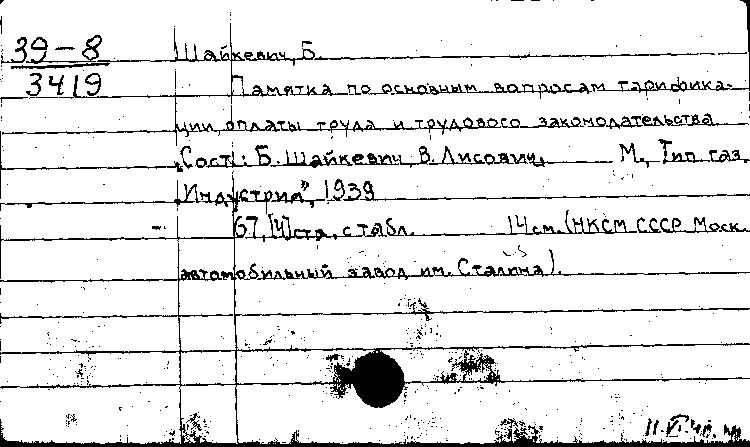 39-8
3419
Шайкевич, Б.
Памятка по основным вопросам тарифика-
ции, оплаты труда и трудового законодательства.
Сост.: Б. Шайкевич, В. Лисович. М., Тип. газ.
„Индустрия", 1939
67, [4] стр. с табл. 14 см. (НКСМ СССР Моск.
автомобильный завод им. Сталина).